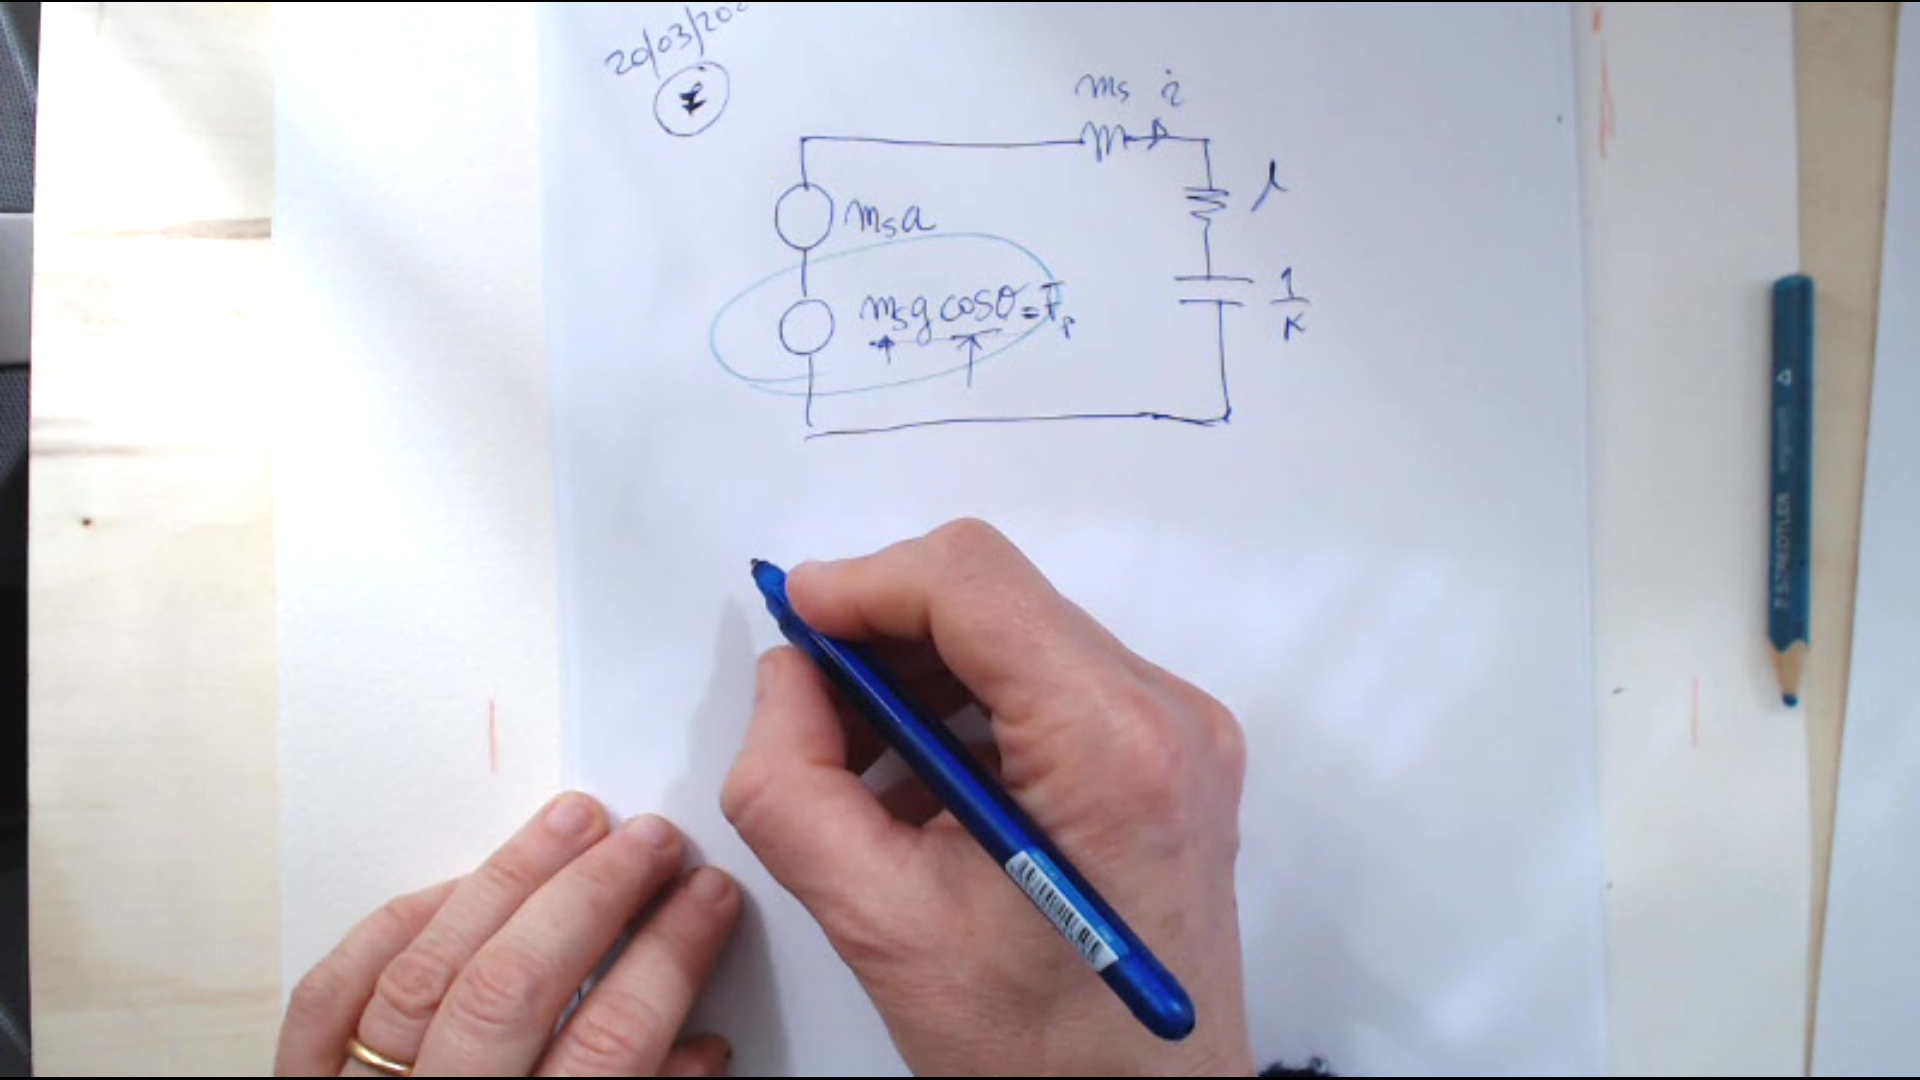 20/03/20
ms ż
λ
msa
msg cosθ = Fp
1
K
STAEDTLER